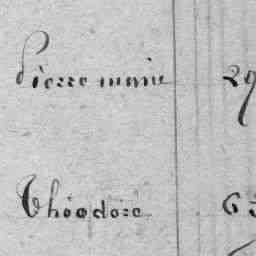 Pierre marie 29
Théodore 63